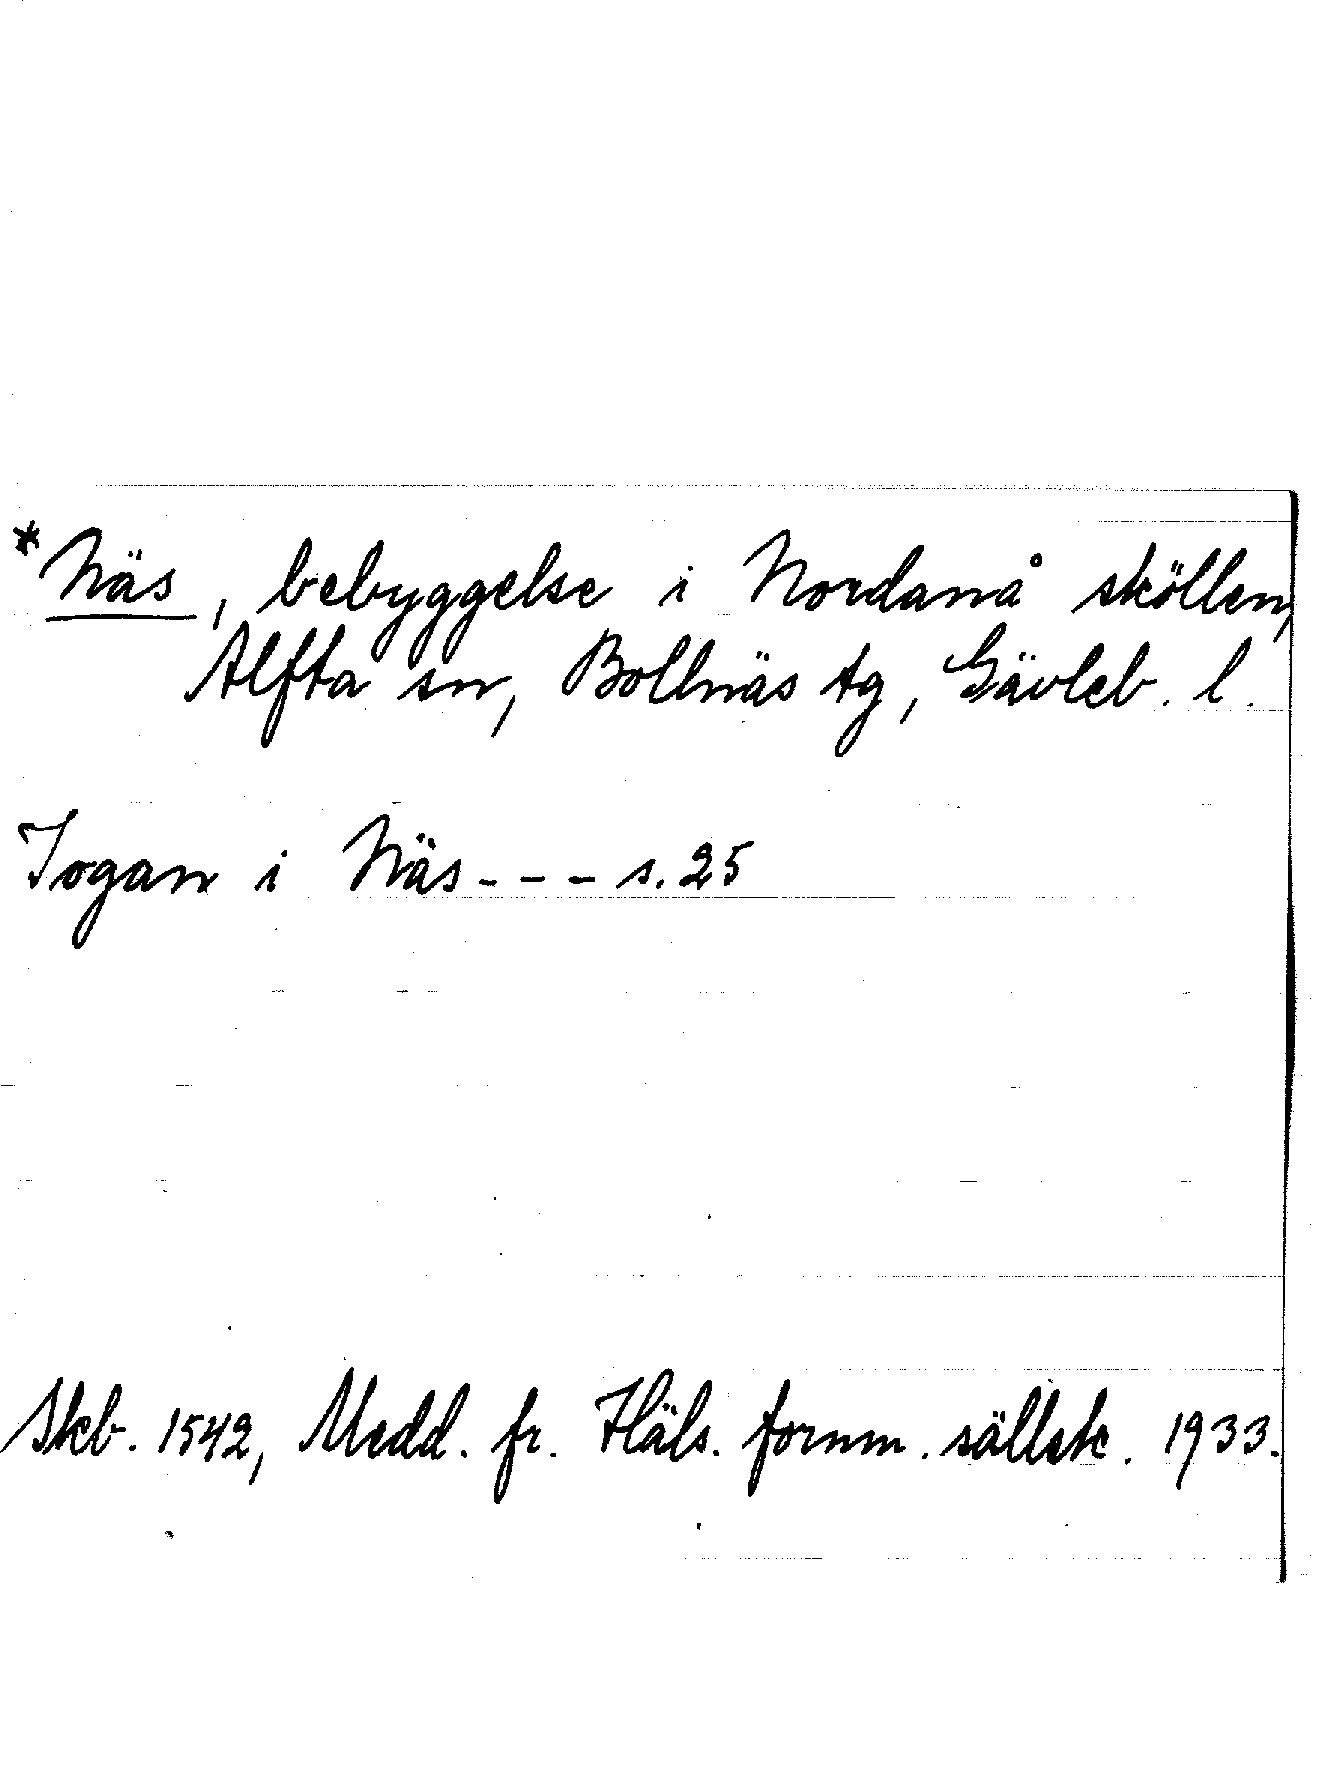 *Näs, bebyggelse i Nordanå sköllen,
Alfta sn, Bollnäs tg, Gävleb. l.
Jogan i Näs - - - s. 25
Skb. 1542, Medd. fr. Häls. fornm. sällsk. 1933.